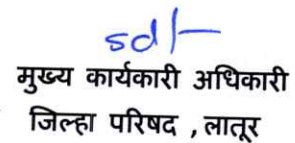 sd/-
मुख्य कार्यकारी अधिकारी
जिल्हा परिषद , लातूर